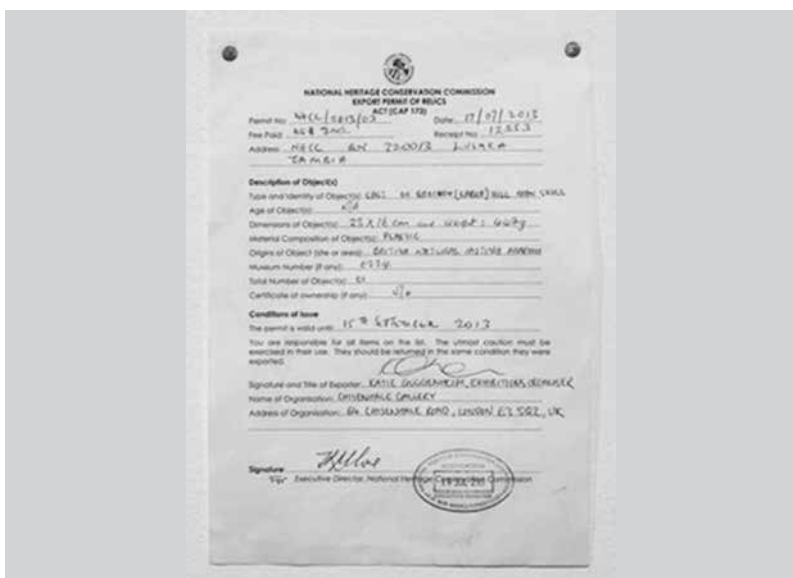 NATIONAL HERITAGE CONSERVATION COMMISSION
EXPORT PERMIT OF RELICS
ACT (CAP 173)
Permit No: NHCC/2013/03 Date: 17/07/2013
Fee Paid: Receipt No: 12553
Address: NHCC BOX LUSAKA
ZAMBIA
Description of Object(s)
Type and Identity of Object(s): CAST OF BROKEN [KABWE] HILL MAN SKULL
Age of Object(s): N/A
Dimensions of Object(s): cm
Material Composition of Object(s): PLASTIC
Origins of Object (site or area): BRITISH NATURAL HISTORY MUSEUM
Museum Number (if any):
Total Number of Object(s): 01
Certificate of ownership (if any): N/A
Conditions of Issue
The permit is valid until: 15TH 2013
You are responsible for all items on the list. The utmost caution must be
exercised in their use. They should be returned in the same condition they were
exported.
Signature and Title of Exporter: KATIE GUGGENHEIM, EXHIBITIONS ORGANISER
Name of Organisation: CHISENHALE GALLERY
Address of Organisation: 64 CHISENHALE ROAD, LONDON E3 5QZ, UK
Signature
For Executive Director, National Heritage Commission